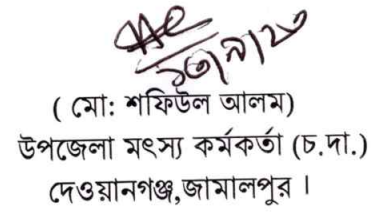 ( মো: শফিউল আলম)
উপজেলা মৎস্য কর্মকর্তা (চ.দা.)
দেওয়ানগঞ্জ,জামালপুর ।